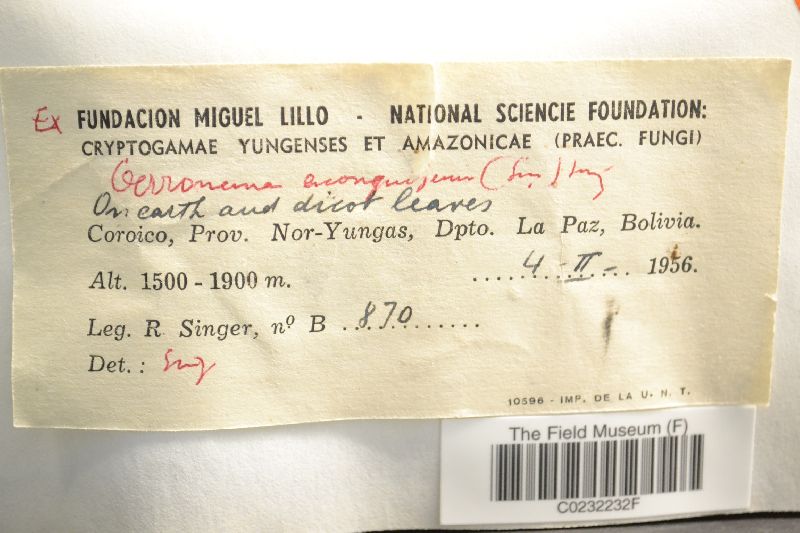 Ex FUNDACION MIGUEL LILLO - NATIONAL SCIENCIE FOUNDATION:
CRYPTOGAMAE YUNGENSES ET AMAZONICAE (PRAEC. FUNGI)
Gerronema (Sing.) Sing
On earth and dicot leaves
Coroico, Prov. Nor-Yungas, Dpto. La Paz, Bolivia.
Alt. 1500 - 1900 m. 4 - II - 1956.
Leg. R Singer, nº B 870
Det.: Sing
10596 - IMP. DE LA U. N. T.
The Field Museum (F)
C0232232F